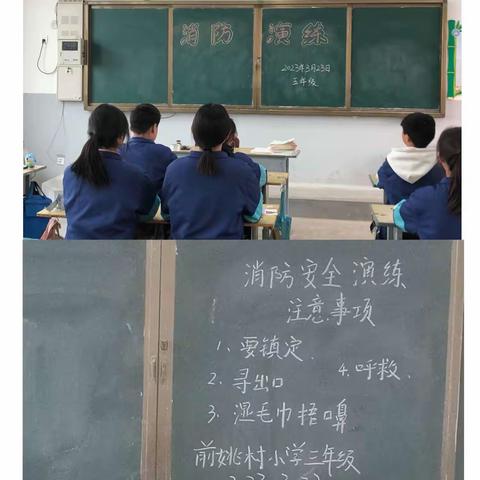 消防演练
2023年3月23日
三年级
消防安全演练
注意事项
1、要镇定.
2、寻出口
3、湿毛巾捂嘴鼻
4.呼救.
前姚村小学三年级